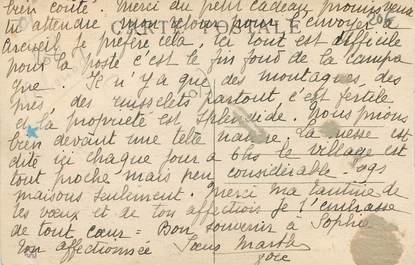 bien coûté. Merci du petit cadeau,
tu attendre mon retour pour l'envoyer
CARTE POSTALE
Arcueil. Je préfère cela, ici tout est difficile
pour la poste c'est le fin fond de la campa
gne. Il n'y a que des montagnes, des
prés, des ruisselets partout, c'est fertile
et la propriété est splendide. Nous prions
bien devant une telle nature. La messe est
dite ici chaque jour à 6 hs le village est
tout proche mais peu considérable. 
maisons seulement. Merci ma tantine de
tes vœux et de ton affection je t'embrasse
de tout cœur = Bon souvenir à Sophie
Ton affectionnée Sœur Marthe